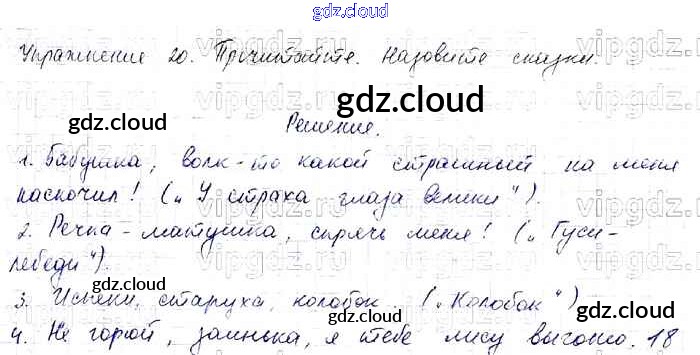 gdz.cloud
Упражнение 20. Прочитайте. Назовите сказки.
gdz.cloud
gdz.cloud
Решение.
1. Бабушка, волк-то какой страшный на меня
наскочил! („У страха глаза велики“).
gdz.cloud
2. Речка-матушка, спрячь меня! („Гуси-
лебеди“).
gdz.cloud
gdz.cloud
3. Испеки, старуха, колобок. („Колобок“)
4. Не горюй, заинька, я тебе лису выгоню. 18
gdz.cloud
gdz.cloud